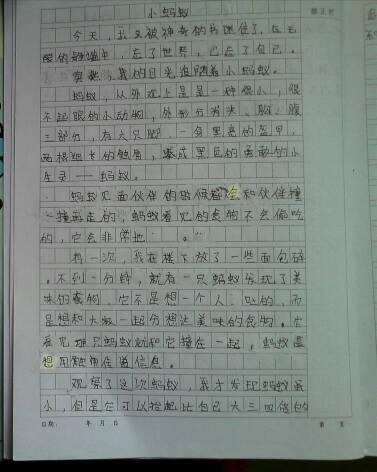 小蚂蚁
今天，我又被神奇的书迷住了，在无
的中，忘了世界，也忘了自己。
我的目光追随着小蚂蚁。
蚂蚁，从外观上是是一种很小，很
不起眼的小动物，外形分有头、胸、腹
三部分，有六只脚，一身黑亮的盔甲，
两根粗大的触角，成黑色的勇敢的小
——蚂蚁。
蚂蚁见面伙伴的时候都会和伙伴撞
一撞再走的，蚂蚁看见的食物不会偷吃
的，它会非常地。
有一次，我在楼下放了一些面包碎
，不到一分钟，就有一只蚂蚁发现了美
味的食物，它不是想一个人吃的，而
是想和大家一起分想这美味的食物。它
看见那只蚂蚁就和它撞在一起，蚂蚁是
想用触角传递信息。
观察了这次蚂蚁，我才发现蚂蚁虽
小，但是它可以抬起比自己大三四倍的
日期： 年 月 日
第 页